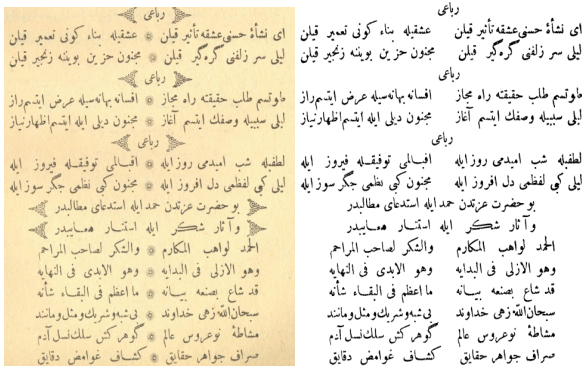 رباعی
ای نشأۀ حسنی عشقه تأثیر قیلن عشقیله بناء كونی تعمیر قیلن
لیلی سر زلفنی گره گیر قیلن مجنون حزین بوینه زنجیر قیلن
رباعی
طوتسم طلب حقیقته راه مجاز افسانه بهانه سیله عرض ایتسم راز
لیلی سببیله وصفك ایتسم آغاز مجنون دیلی ایله ایتسم اظهار نیاز
رباعی
لطفیله شب امیدمی روز ایله اقبالمی توفیقله فیروز ایله
لیلی كبی لفظمی دل افروز ایله مجنون كبی نظمی جگر سوز ایله
بو حضرت عزتدن حمد ایله استدعای مطالبدر
و آثار شكر ایله استنار معایبدر
الحمد لواهب المكارم والشكر لصاحب المراحم
وهو الازلی فی البدایه وهو الابدی فی النهایه
قد شاع بصنعه بیانه ما اعظم فی البقاء شأنه
سبحان الله زهی خداوند بی شبه و شریك و مثل و مانند
مشاطۀ نوعروس عالم گوهر كش سلك نسل آدم
صراف جواهر حقایق كشاف غوامض دقایق
رباعی
ای نشأۀ حسنی عشقه تأثیر قیلن عشقیله بناء كونی تعمیر قیلن
لیلی سر زلفنی گره گیر قیلن مجنون حزین بوینه زنجیر قیلن
رباعی
طوتسم طلب حقیقته راه مجاز افسانه بهانه سیله عرض ایتسم راز
لیلی سببیله وصفك ایتسم آغاز مجنون دیلی ایله ایتسم اظهار نیاز
رباعی
لطفیله شب امیدمی روز ایله اقبالمی توفیقله فیروز ایله
لیلی كبی لفظمی دل افروز ایله مجنون كبی نظمی جگر سوز ایله
بو حضرت عزتدن حمد ایله استدعای مطالبدر
و آثار شكر ایله استنار معایبدر
الحمد لواهب المكارم والشكر لصاحب المراحم
وهو الازلی فی البدایه وهو الابدی فی النهایه
قد شاع بصنعه بیانه ما اعظم فی البقاء شأنه
سبحان الله زهی خداوند بی شبه و شریك و مثل و مانند
مشاطۀ نوعروس عالم گوهر كش سلك نسل آدم
صراف جواهر حقایق كشاف غوامض دقایق